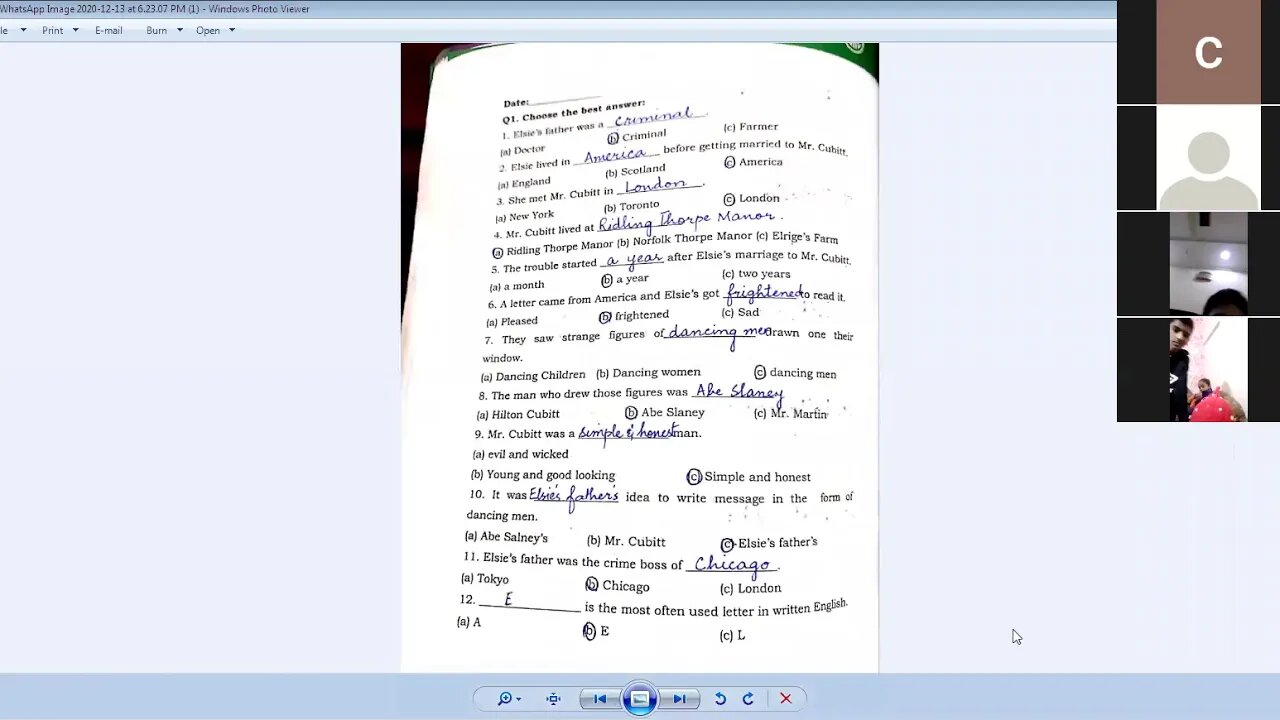 WhatsApp Image 2020-12-13 at 6.23.07 PM (1) - Windows Photo Viewer
le Print E-mail Burn Open
C
Date:
Q1. Choose the best answer:
1. Elsie's father was a Criminal.
(a) Doctor (b) Criminal (c) Farmer
2. Elsie lived in America before getting married to Mr. Cubitt.
(a) England (b) Scotland (c) America
3. She met Mr. Cubitt in London.
(a) New York (b) Toronto (c) London
4. Mr. Cubitt lived at Ridling Thorpe Manor.
(a) Ridling Thorpe Manor (b) Norfolk Thorpe Manor (c) Elrige's Farm
5. The trouble started a year after Elsie's marriage to Mr. Cubitt.
(a) a month (b) a year (c) two years
6. A letter came from America and Elsie's got frightened to read it.
(a) Pleased (b) frightened (c) Sad
7. They saw strange figures of dancing men drawn one their
window.
(a) Dancing Children (b) Dancing women (c) dancing men
8. The man who drew those figures was Abe Slaney
(a) Hilton Cubitt (b) Abe Slaney (c) Mr. Martin
9. Mr. Cubitt was a simple & honest man.
(a) evil and wicked
(b) Young and good looking (c) Simple and honest
10. It was Elsie's father's idea to write message in the form of
dancing men.
(a) Abe Salney's (b) Mr. Cubitt (c) Elsie's father's
11. Elsie's father was the crime boss of Chicago.
(a) Tokyo (b) Chicago (c) London
12. E is the most often used letter in written English.
(a) A (b) E (c) L